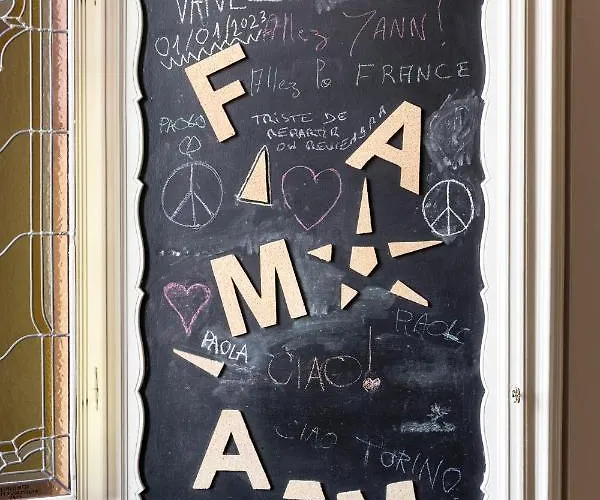 01/01/2023
Allez YANN!
F
Allez la FRANCE
A
PAOLO
TRISTE DE
REPARTIR
ON REVIENDRA
M
PAOLA
CIAO!
PAOLO
A
CIAO TORINO